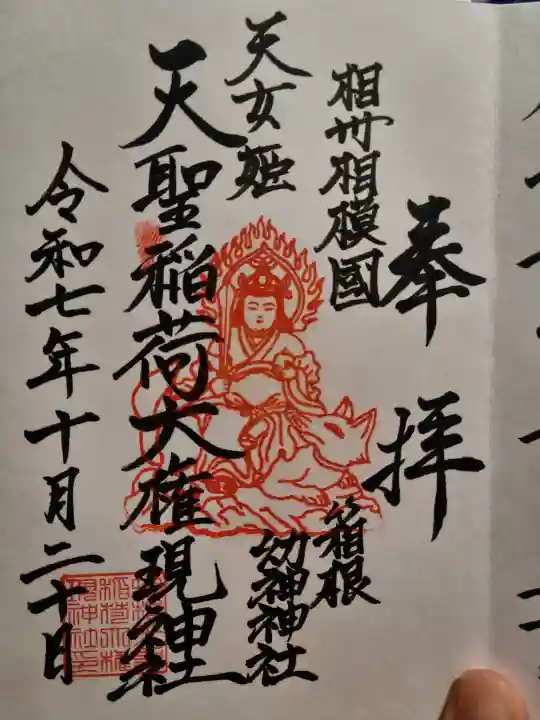 奉拝
相州相模國
箱根
幼神神社
天女姫
天聖稲荷大権現神
令和七年十月二十日